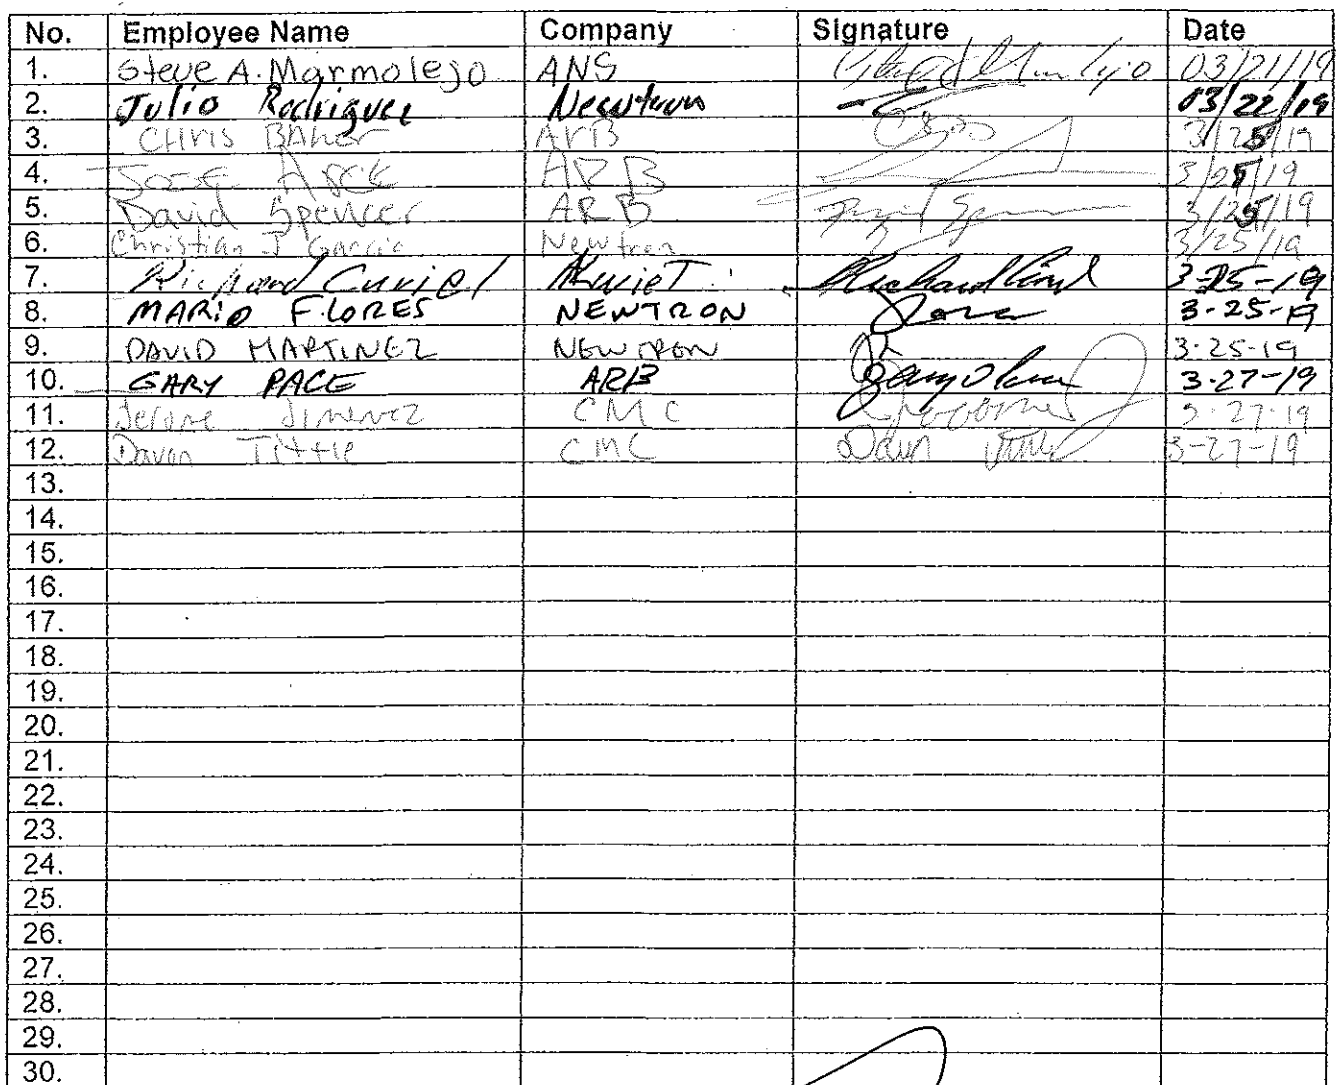 No. Employee Name Company Signature Date
1. Steve A. Marmolejo ANS 03/21/19
2. Julio Rodriguez Newtron 03/22/19
3. CHris BAker ArB 3/25/19
4. JOSE ARCE ARB 3/25/19
5. David Spencer ARB David 3/25/19
6. Christian J Garcia Newtron 3/25/19
7. Richard Curiel Richard 3-25-19
8. MARiO FLORES NEWTRON 3-25-19
9. DAVID MARTINEZ NEWTRON 3-25-19
10. GARY PACE ARB 3-27-19
11. Jerome Jimenez CMC 3-27-19
12. Davon Tittle CMC 3-27-19
13.
14.
15.
16.
17.
18.
19.
20.
21.
22.
23.
24.
25.
26.
27.
28.
29.
30.